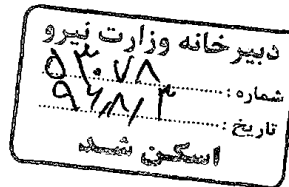 دبیرخانه وزارت نیرو
شماره : ۵۳۰۷۸
تاریخ : ۹۶/۸/۳
اسکن شد